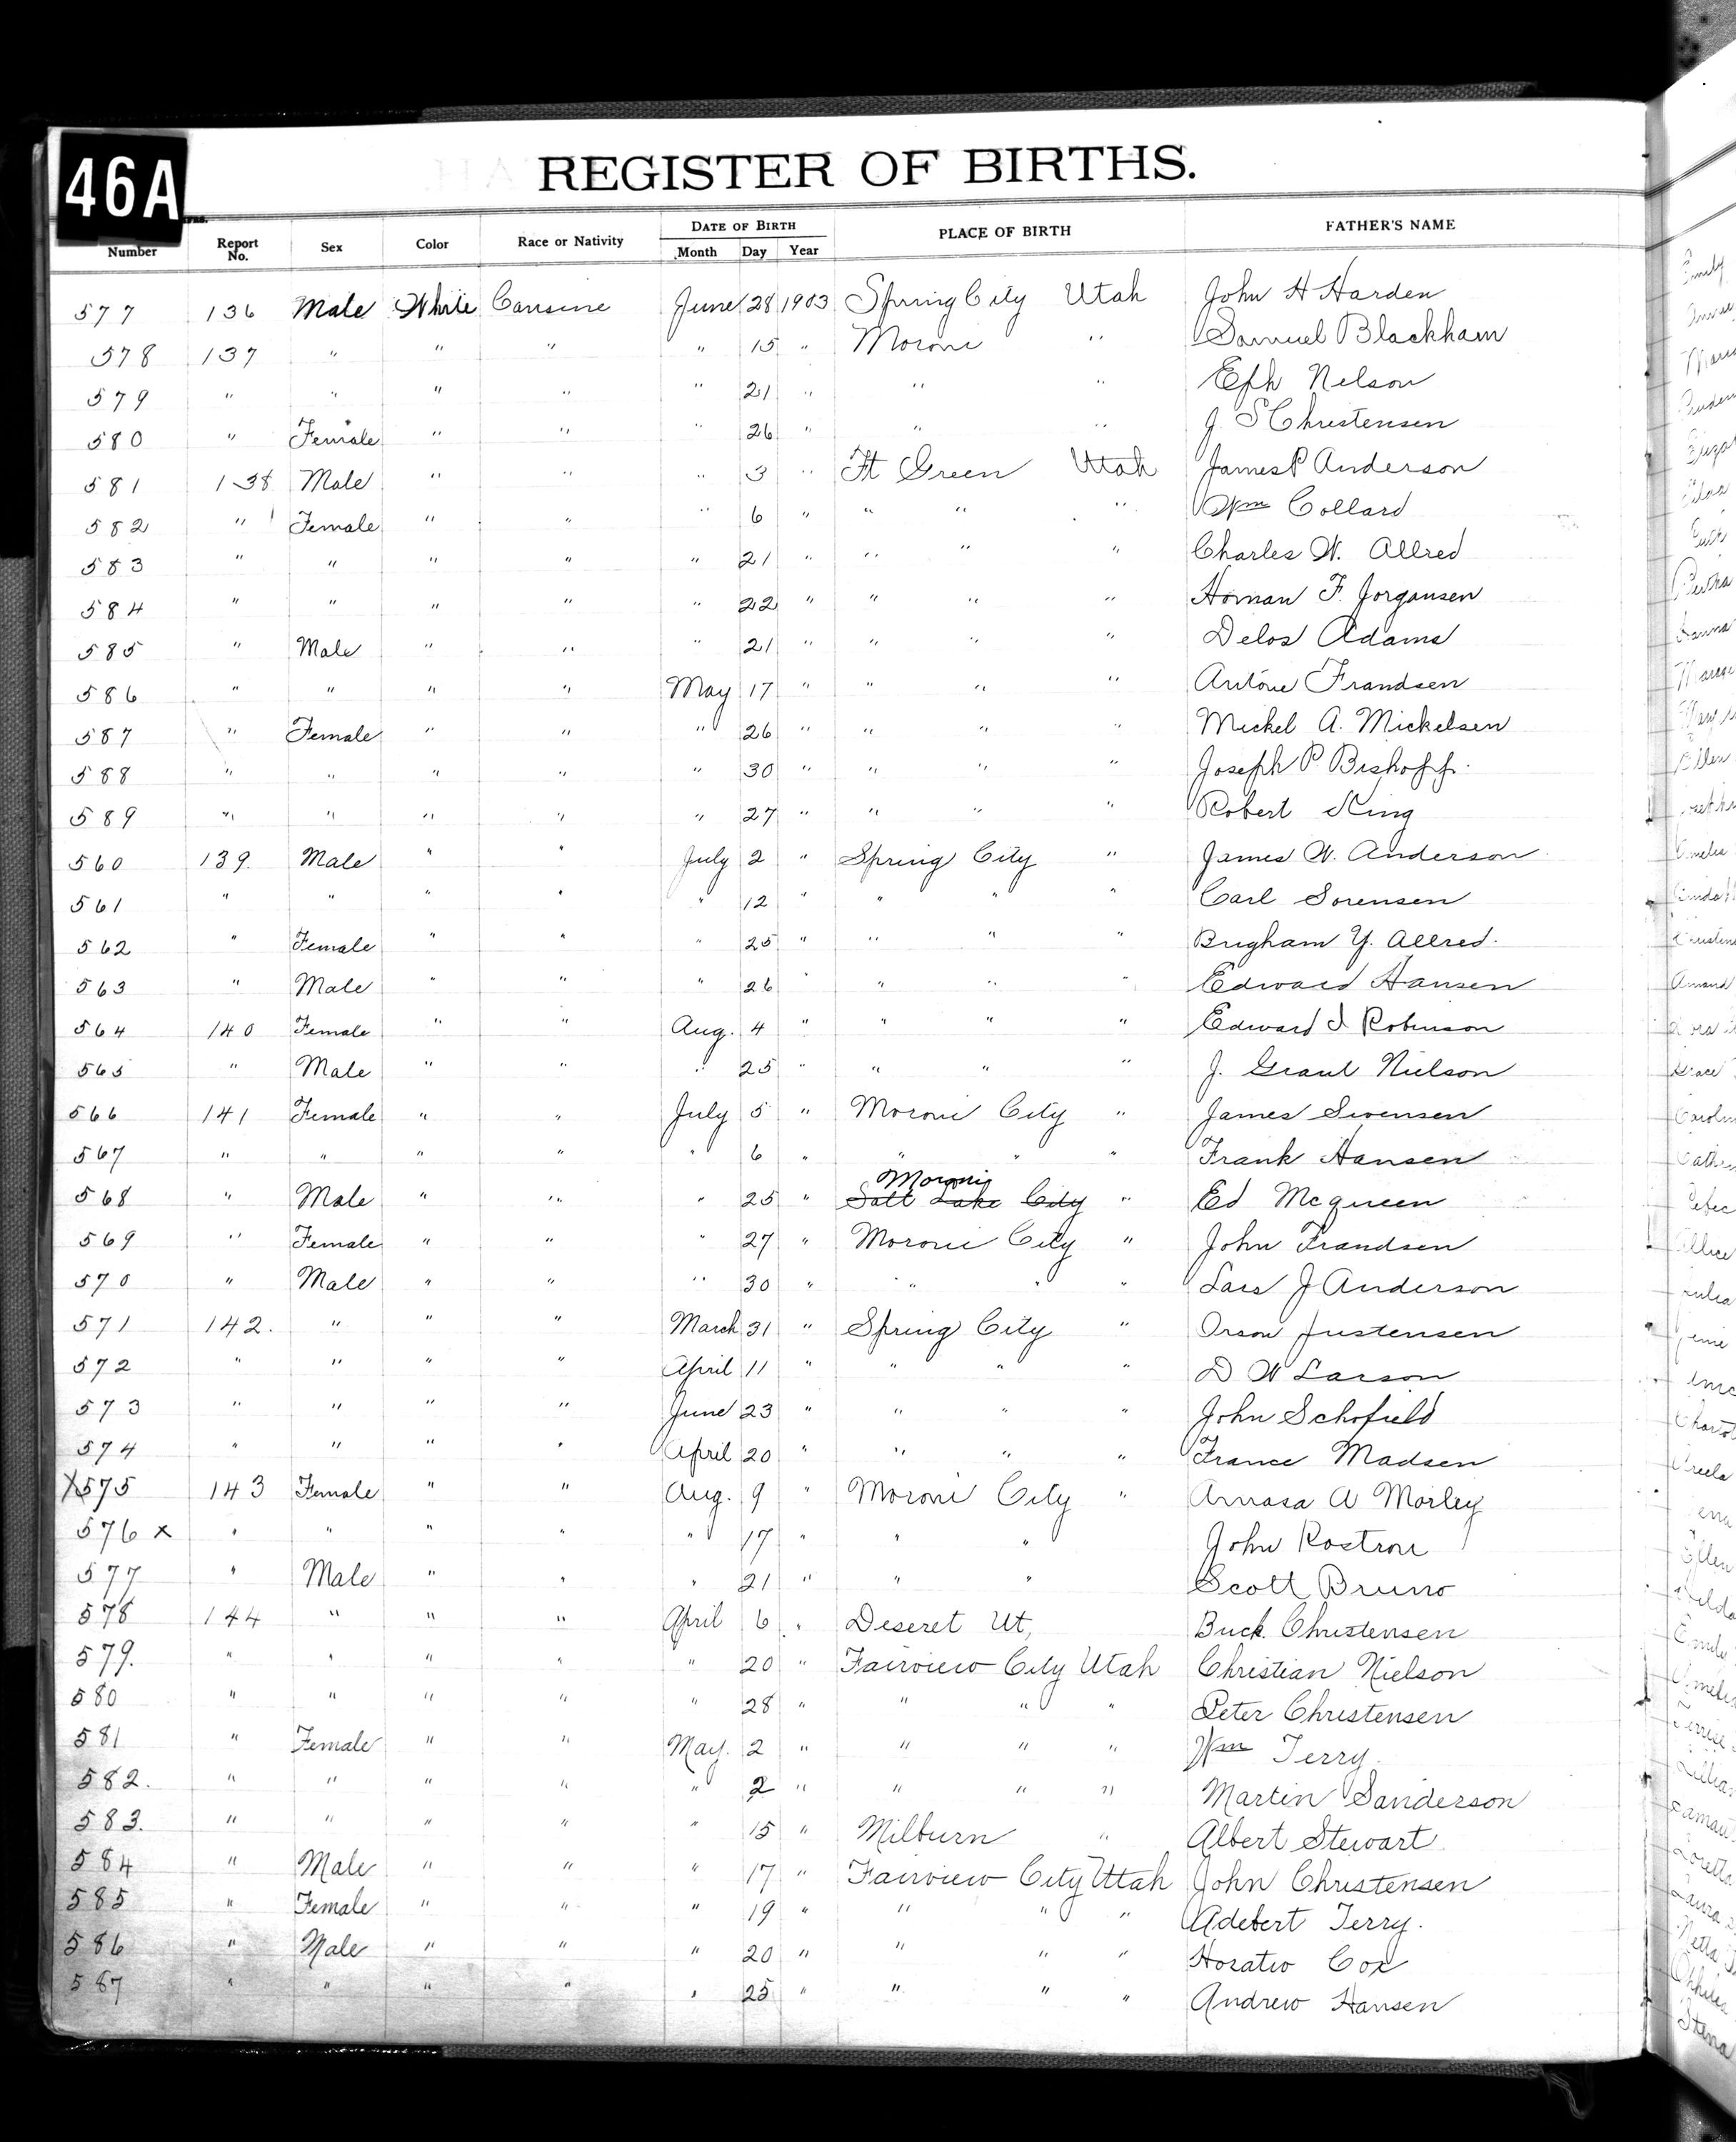 46A
REGISTER OF BIRTHS.
Number Report No. Sex Color Race or Nativity DATE OF BIRTH Month Day Year PLACE OF BIRTH FATHER'S NAME
577 136 Male White Causine June 28 1903 Spring City Utah John H Harden
578 137 " " " " 15 " Moroni " Samuel Blackham
579 " " " " " 21 " " " Eph Nelson
580 " Female " " " 26 " " " J. S Christensen
581 138 Male " " " 3 " Ft Green Utah James P Anderson
582 " Female " " " 6 " " " " Wm Collard
583 " " " " " 21 " " " " Charles W. Allred
584 " " " " " 22 " " " " Homan F. Jorgansen
585 " Male " " " 21 " " " " Delos Adams
586 " " " " May 17 " " " " Antone Frandsen
587 " Female " " " 26 " " " " Mickel A. Mickelsen
588 " " " " " 30 " " " " Joseph P. Bishoff.
589 " " " " " 27 " " " " Robert King
560 139. Male " " July 2 " Spring City " James W. Anderson
561 " " " " " 12 " " " " Carl Sorensen
562 " Female " " " 25 " " " " Brigham Y. Allred.
563 " Male " " " 26 " " " " Edward Hansen
564 140 Female " " Aug. 4 " " " " Edward I Robinson
565 " Male " " " 25 " " " " J. Grant Nielson
566 141 Female " " July 5 " Moroni City " James Swensen
567 " " " " " 6 " " " " Frank Hansen
Moroni
568 " Male " " " 25 " Salt Lake City " Ed Mcqueen
569 " Female " " " 27 " Moroni City " John Frandsen
570 " Male " " " 30 " " " " Lars J Anderson
571 142. " " " March 31 " Spring City " Orson Justensen
572 " " " " April 11 " " " " D W Larson
573 " " " " June 23 " " " " John Schofield
574 " " " " April 20 " " " " France Madsen
X575 143 Female " " Aug. 9 " Moroni City " Amasa A Morley
576 x " " " " " 17 " " " John Rostron
577 " Male " " " 21 " " " Scott Bruno
578 144 " " " April 6 " Deseret Ut, Buck Christensen
579. " " " " " 20 " Fairview City Utah Christian Nielson
580 " " " " " 28 " " " " Peter Christensen
581 " Female " " May. 2 " " " " Wm Terry.
582. " " " " " 2 " " " " Martin Sanderson
583. " " " " " 15 " Milburn " Albert Stewart
584 " Male " " " 17 " Fairview City Utah John Christensen
585 " Female " " " 19 " " " " Adebert Terry.
586 " Male " " " 20 " " " " Horatio Cox
587 " " " " " 25 " " " " Andrew Hansen